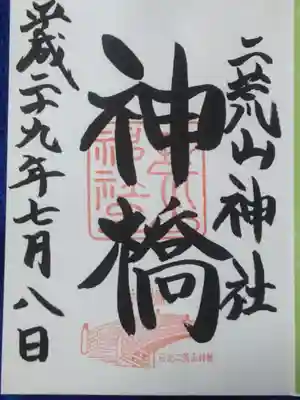 二荒山神社
神橋
平成二十九年七月八日